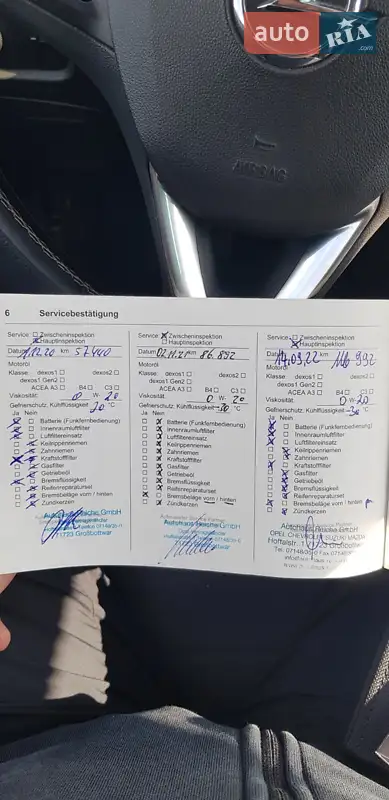 auto RIA
.com
AIRBAG
6 Servicebestätigung
Service ☐ Zwischeninspektion
☒ Hauptinspektion
Datum 1.12.20 km 57440
Motoröl
Klasse: dexos1 ☐ dexos2 ☐
dexos1 Gen2 ☐
ACEA A3 ☐ B4 ☐ C3 ☐
Viskosität: 0 W- 20
Gefrierschutz, Kühlflüssigkeit 20 °C
Ja Nein
Batterie (Funkfernbedienung)
Innenraumluftfilter
Luftfiltereinsatz
Keilrippenriemen
Zahnriemen
Kraftstofffilter
Gasfilter
Getriebeöl
Bremsflüssigkeit
Reifenreparaturset
Bremsbeläge vorn / hinten
Zündkerzen
71723 Großbottwar
Service ☒ Zwischeninspektion
☐ Hauptinspektion
Datum 02.11.21 km 86.892
Motoröl
Klasse: dexos1 ☐ dexos2 ☐
dexos1 Gen2 ☐
ACEA A3 ☐ B4 ☐ C3 ☐
Viskosität: 0 W- 20
Gefrierschutz, Kühlflüssigkeit -30 °C
Ja Nein
Batterie (Funkfernbedienung)
Innenraumluftfilter
Luftfiltereinsatz
Keilrippenriemen
Zahnriemen
Kraftstofffilter
Gasfilter
Getriebeöl
Bremsflüssigkeit
Reifenreparaturset
Bremsbeläge vorn / hinten
Zündkerzen
Service ☐ Zwischeninspektion
☒ Hauptinspektion
Datum 14.09.22 km 116 992
Motoröl
Klasse: dexos1 ☐ dexos2 ☐
dexos1 Gen2 ☐
ACEA A3 ☐ B4 ☐ C3 ☐
Viskosität: 0 W- 20
Gefrierschutz, Kühlflüssigkeit -36 °C
Ja Nein
Batterie (Funkfernbedienung)
Innenraumluftfilter
Luftfiltereinsatz
Keilrippenriemen
Zahnriemen
Kraftstofffilter
Gasfilter
Getriebeöl
Bremsflüssigkeit
Reifenreparaturset
Bremsbeläge vorn / hinten
Zündkerzen
OPEL CHEVROLET SUZUKI MAZDA